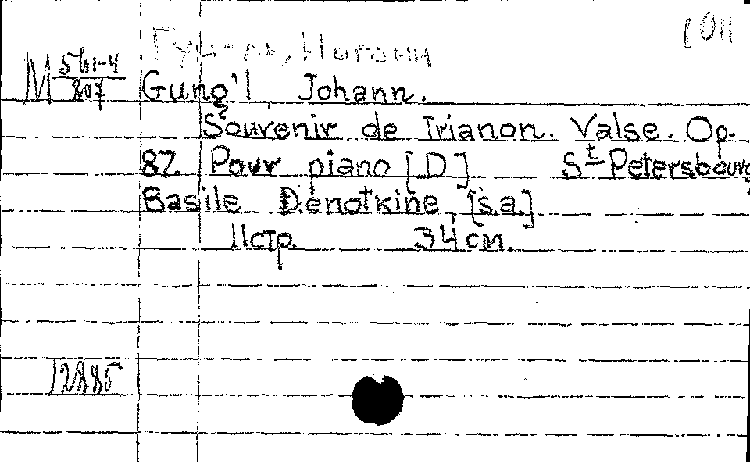 Гунгль, Иоганн
М 561-4
807
Gung'l, Johann.
Souvenir de Trianon. Valse. Op.
82. Pour piano [D] St Petersbourg
Basile Dénotkine, [s.a.]
11стр. 34 см.
12885